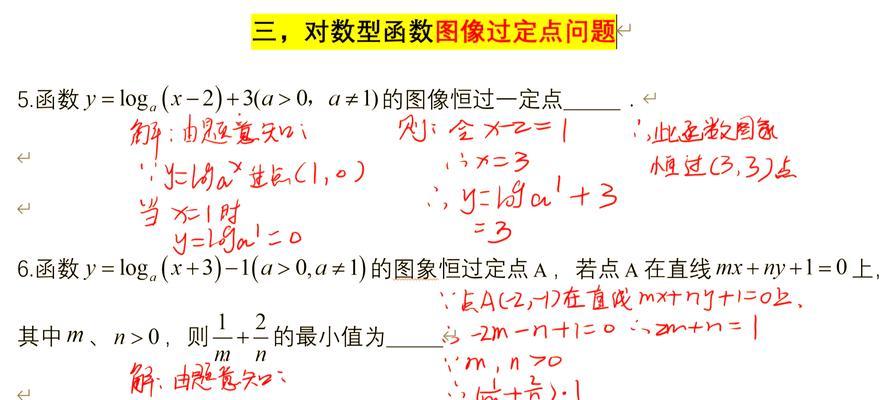 三，对数型函数图像过定点问题
5.函数 y=logₐ(x−2)+3(a>0，a≠1)的图像恒过一定点_____．
解:由题意知:
∵y=logₐx过点(1,0)
当x=1时
y=logₐ1=0
则:令x-2=1
∴x=3
∴y=logₐ1+3
=3
∴此函数图象
恒过(3,3)点
6.函数 y=logₐ(x+3)−1(a>0,a≠1)的图象恒过定点A，若点A在直线mx+ny+1=0上，
其中m、n>0，则1/m+2/n的最小值为_____
解:由题意知:
∵点A(-2,-1)在直线mx+ny+1=0上,
∴-2m-n+1=0 ∴2m+n=1
∵m,n>0
∴(1/m+2/n)·1